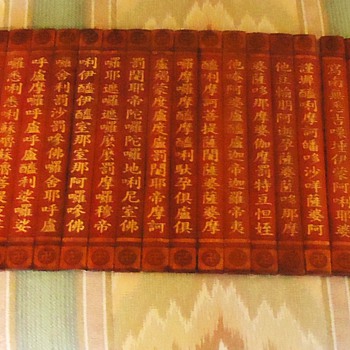 利耶婆
謹墀醯利摩訶皤哆沙咩薩婆阿
他豆輸朋阿逝孕薩婆薩哆那摩
婆薩哆那摩婆伽摩罰特豆怛姪
他唵阿婆盧醯盧迦帝迦羅帝夷
醯利摩訶菩提薩埵薩婆薩婆摩
囉摩囉摩醯摩醯利馱孕俱盧俱
盧羯蒙度盧度盧罰闍耶帝摩訶
罰闍耶帝陀囉陀囉地利尼室佛
囉耶遮囉遮囉麼麼罰摩囉穆帝
利伊醯伊醯室那室那阿囉嘇佛
囉舍利罰沙罰嘇佛囉舍耶呼盧
呼盧摩囉呼盧呼盧醯利娑囉娑
囉悉利悉利蘇嚧蘇嚧菩提